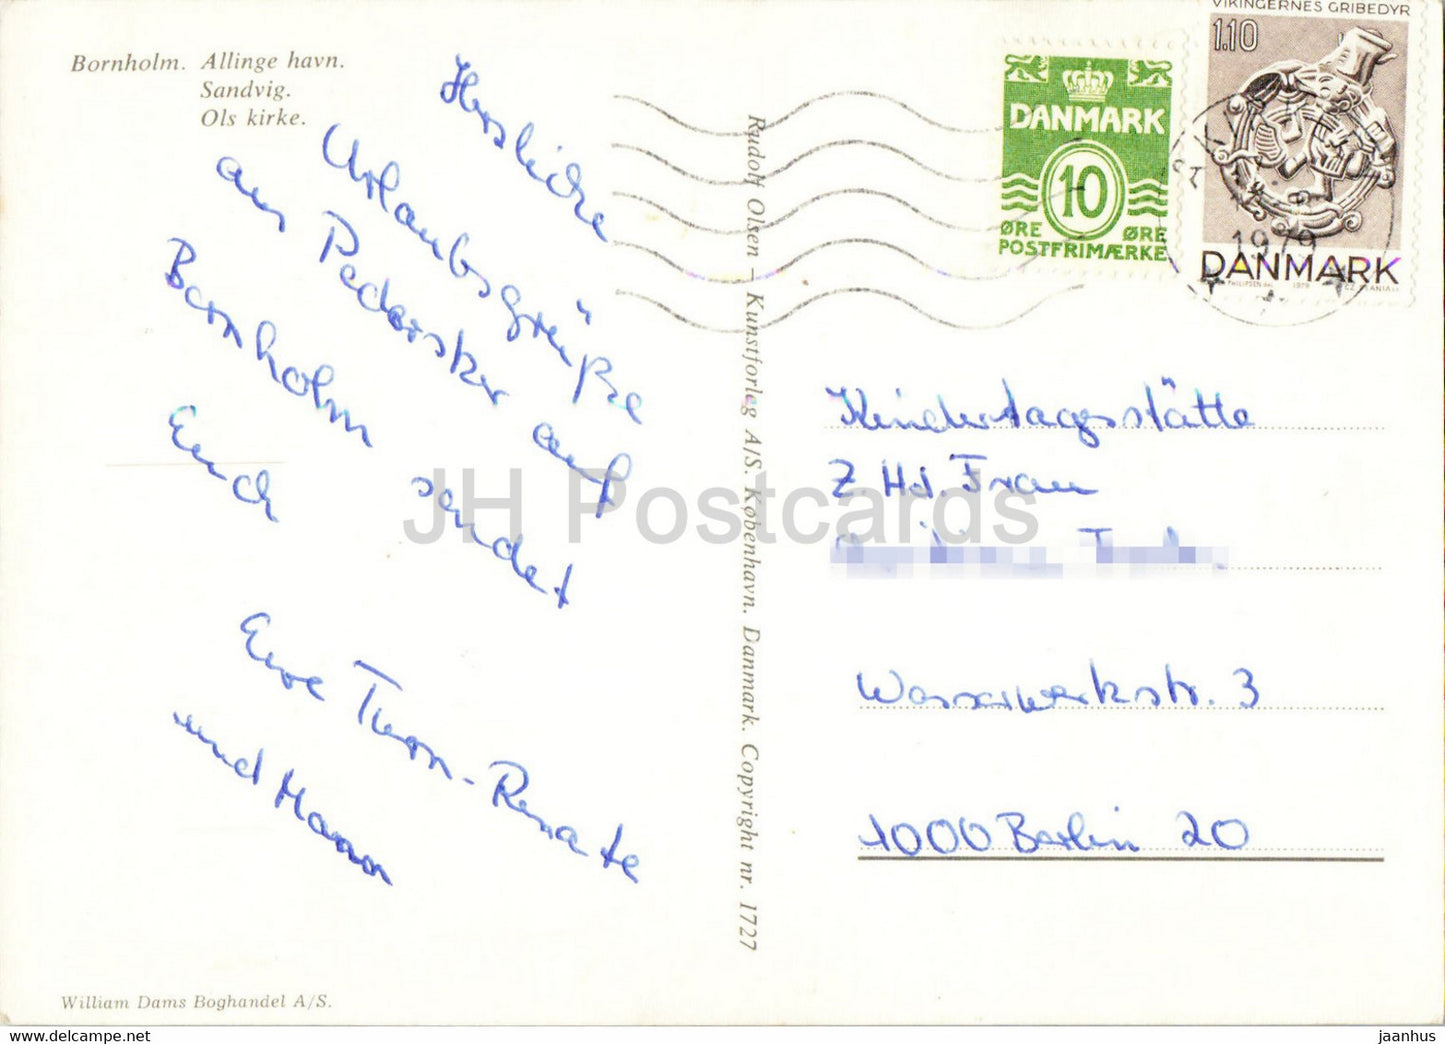 Bornholm. Allinge havn.
Sandvig.
Ols kirke.
Herzliche
Urlaubsgrüße
aus Pedersker auf
Bornholm sendet
Euch
Eure
und Mann
William Dams Boghandel A/S.
Rudolf Olsen – Kunstforlag A/S. København. Danmark. Copyright nr. 1727
DANMARK
10
ØRE ØRE
POSTFRIMÆRKE
VIKINGERNES GRIBEDYR
1.10
DANMARK
1979
Kindertagesstätte
Z. Hd. Frau
Wasserwerkstr. 3
1000 Berlin 20
JH Postcards
www.delcampe.net
jaanhus